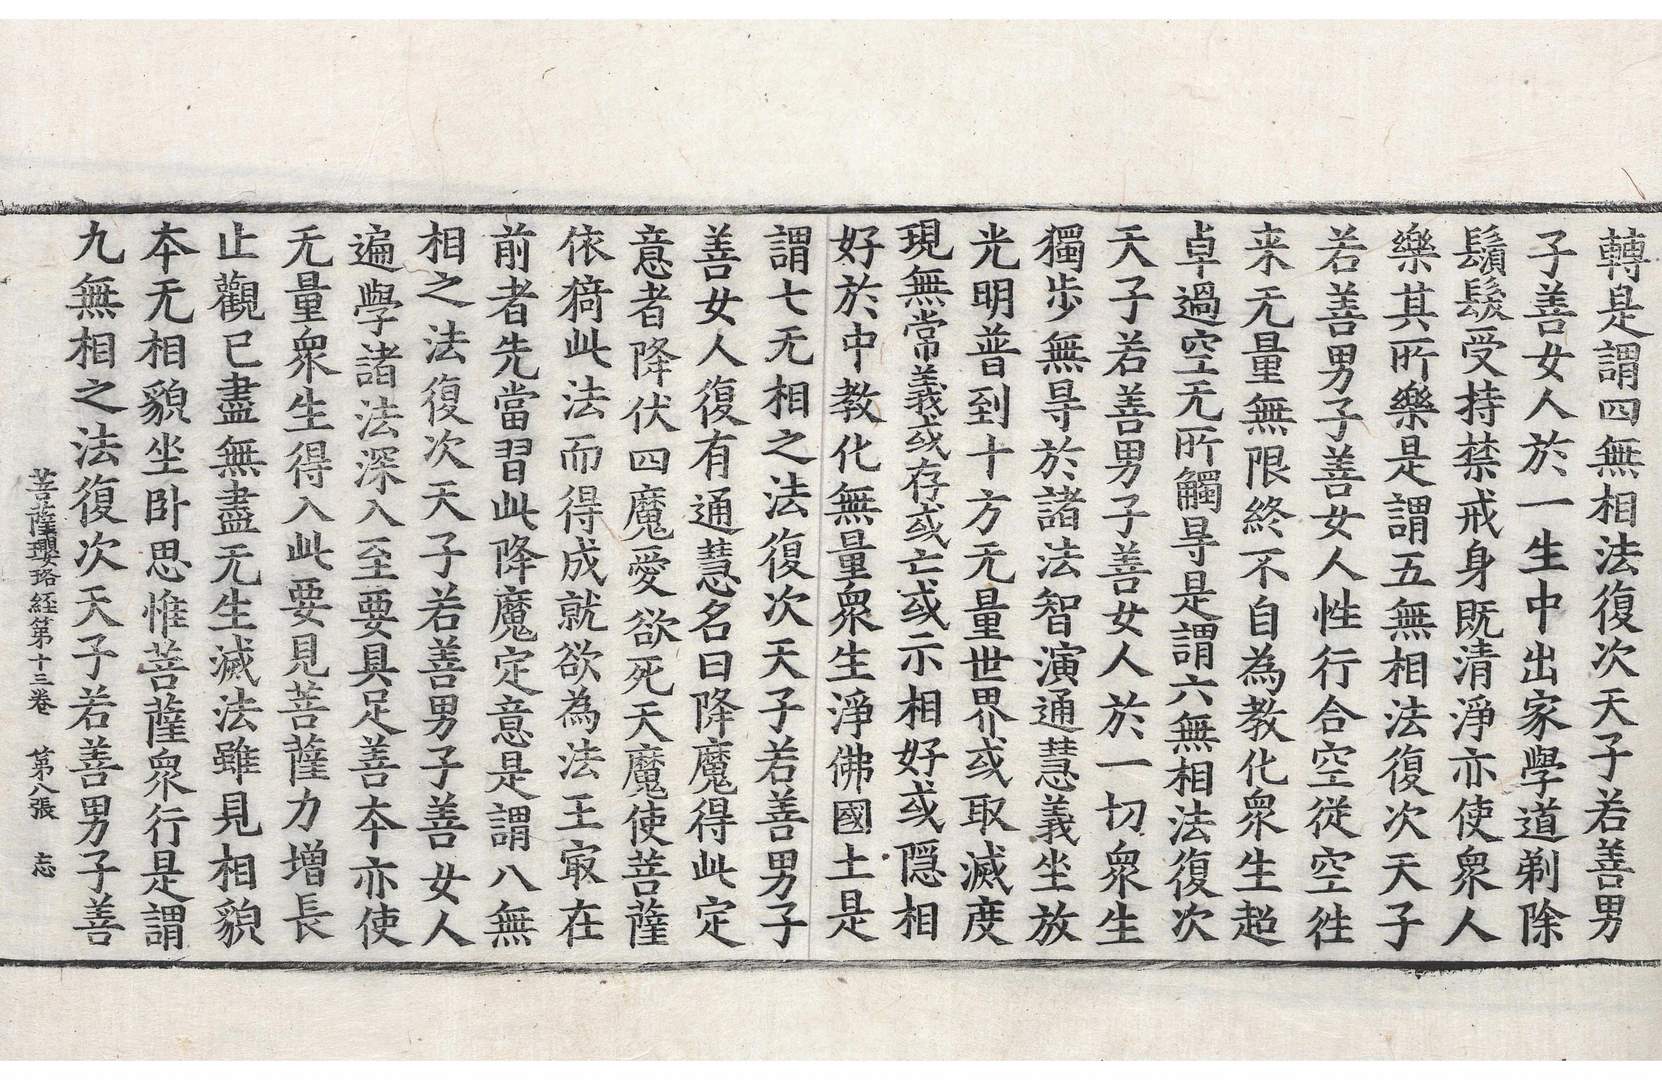 轉是謂四無相法復次天子若善男
子善女人於一生中出家學道剃除
鬚髮受持禁戒身既清淨亦使衆人
樂其所樂是謂五無相法復次天子
若善男子善女人性行合空從空徃
来无量無限終不自為教化衆生超
卓過空无所觸㝵是謂六無相法復次
天子若善男子善女人於一切衆生
獨步無㝵於諸法智演通慧義坐放
光明普到十方无量世界或取滅度
現無常義或存或亡或示相好或隱相
好於中教化無量衆生淨佛國土是
謂七无相之法復次天子若善男子
善女人復有通慧名曰降魔得此定
意者降伏四魔愛欲死天魔使菩薩
依猗此法而得成就欲為法王㝡在
前者先當習此降魔定意是謂八無
相之法復次天子若善男子善女人
遍學諸法深入至要具足善本亦使
无量衆生得入此要見菩薩力增長
止觀已盡無盡无生滅法雖見相貌
本无相貌坐卧思惟菩薩衆行是謂
九無相之法復次天子若善男子善
菩薩瓔珞経第十三卷 第八張 忘